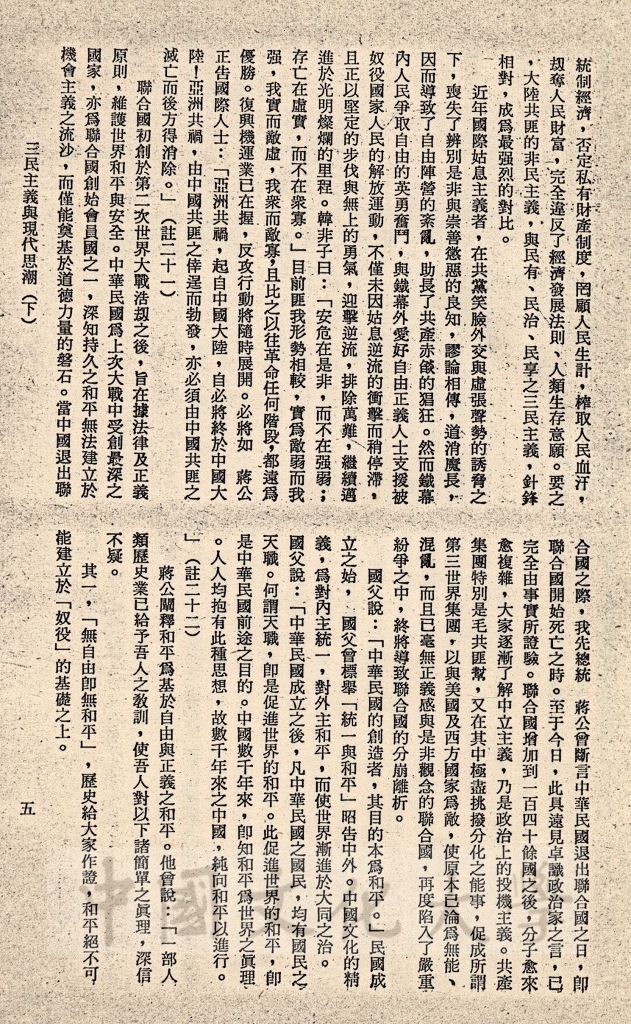 統制經濟，否定私有財產制度，罔顧人民生計，榨取人民血汗，
刧奪人民財富，完全違反了經濟發展法則、人類生存意願。要之
，大陸共匪的非民主義，與民有、民治、民享之三民主義，針鋒
相對，成爲最强烈的對比。
近年國際姑息主義者，在共黨笑臉外交與虛張聲勢的誘脅之
下，喪失了辨別是非與崇善懲惡的良知，謬論相傳，道消魔長，
因而導致了自由陣營的紊亂，助長了共產赤燄的猖狂。然而鐵幕
內人民爭取自由的英勇奮鬥，與鐵幕外愛好自由正義人士支援被
奴役國家人民的解放運動，不僅未因姑息逆流的衝擊而稍停滯，
且正以堅定的步伐與無上的勇氣，迎擊逆流，排除萬難，繼續邁
進於光明燦爛的里程。韓非子曰：「安危在是非，而不在强弱；
存亡在虛實，而不在衆寡。」目前匪我形勢相較，實爲敵弱而我
强，我實而敵虛，我衆而敵寡，且比之以往革命任何階段，都遠爲
優勝。復興機運業已在握，反攻行動將隨時展開。必將如　蔣公
正告國際人士：「亞洲共禍，起自中國大陸，自必將終於中國大
陸！亞洲共禍，由中國共匪之倖逞而勃發，亦必須由中國共匪之
滅亡而後方得消除。」（註二十一）
聯合國初創於第二次世界大戰浩刧之後，旨在據法律及正義
原則，維護世界和平與安全。中華民國爲上次大戰中受創最深之
國家，亦爲聯合國創始會員國之一，深知持久之和平無法建立於
機會主義之流沙，而僅能奠基於道德力量的磐石。當中國退出聯
三民主義與現代思潮（下）
合國之際，我先總統　蔣公曾斷言中華民國退出聯合國之日，卽
聯合國開始死亡之時。至于今日，此具遠見卓識政治家之言，已
完全由事實所證驗。聯合國增加到一百四十餘國之後，分子愈來
愈複雜，大家逐漸了解中立主義，乃是政治上的投機主義。共產
集團特別是毛共匪幫，又在其中極盡挑撥分化之能事，促成所謂
第三世界集團，以與美國及西方國家爲敵，使原本已淪爲無能、
混亂，而且已毫無正義感與是非觀念的聯合國，再度陷入了嚴重
紛爭之中，終將導致聯合國的分崩離析。
國父說：「中華民國的創造者，其目的本爲和平。」民國成
立之始，　國父曾標舉「統一與和平」昭告中外。中國文化的精
義，爲對內主統一，對外主和平，而使世界漸進於大同之治。
國父說：「中華民國成立之後，凡中華民國之國民，均有國民之
天職。何謂天職，卽是促進世界的和平。此促進世界的和平，卽
是中華民國前途之目的。中國數千年來，卽知和平爲世界之眞理
。人人均抱有此種思想，故數千年來之中國，純向和平以進行。
」（註二十二）
蔣公闡釋和平爲基於自由與正義之和平。他曾說：「一部人
類歷史業已給予吾人之敎訓，使吾人對以下諸簡單之眞理，深信
不疑。
其一，「無自由卽無和平」，歷史給大家作證，和平絕不可
能建立於「奴役」的基礎之上。
五
中國文化大學